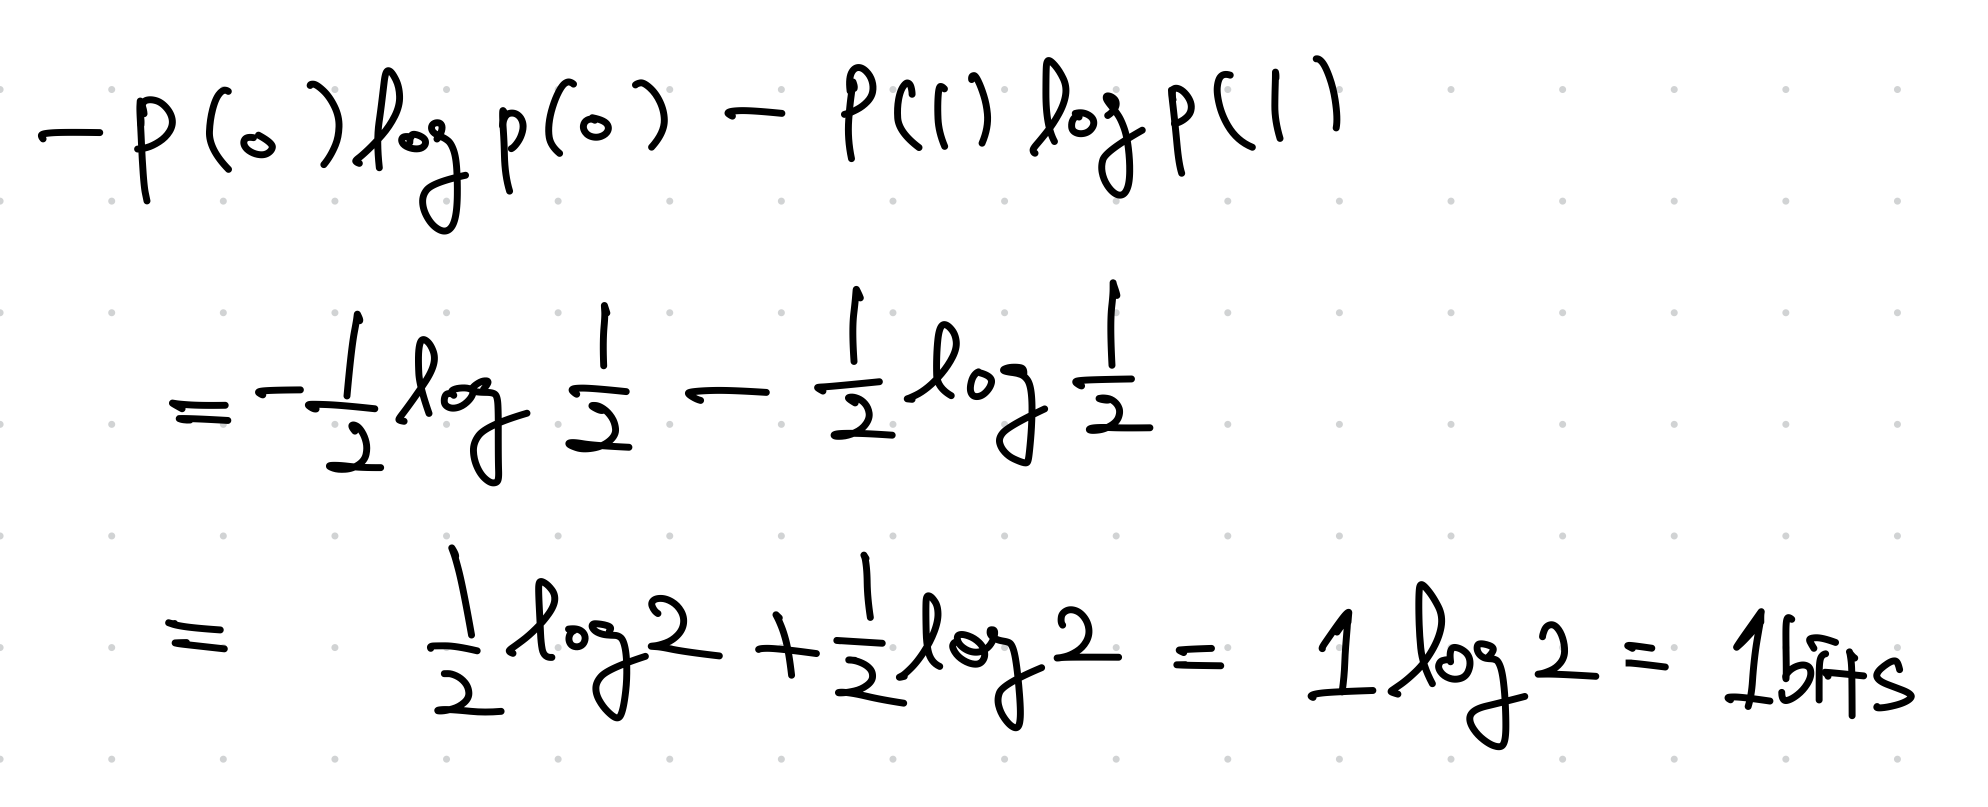 -P(0)log p(0) - P(1)log p(1)
= -1/2 log 1/2 - 1/2 log 1/2
= 1/2 log2 + 1/2 log2 = 1 log2 = 1bits